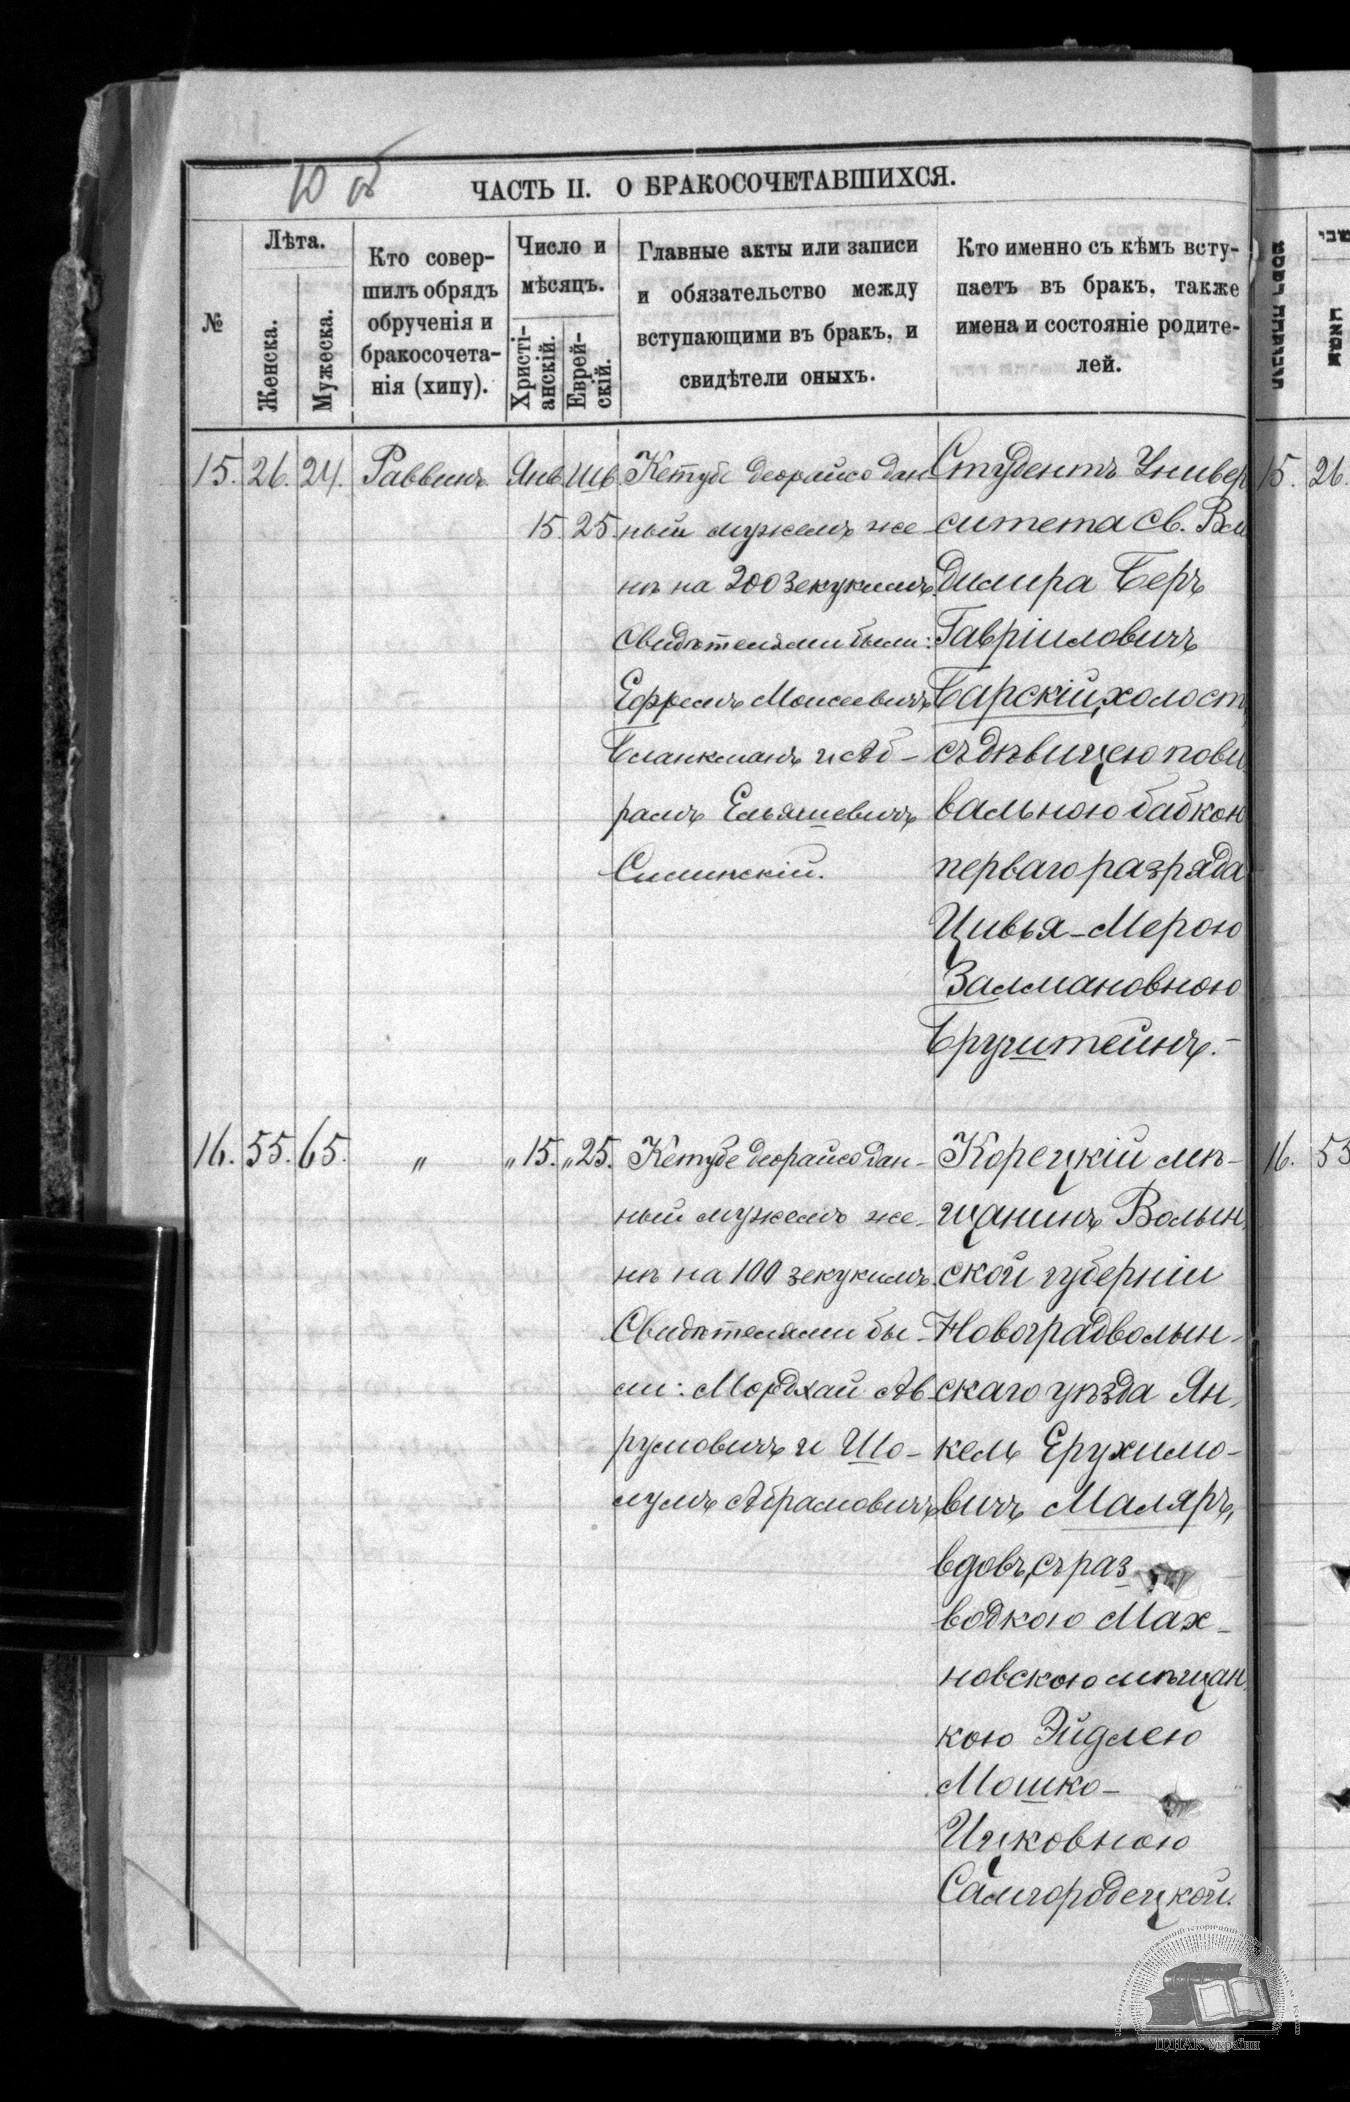 10 об
ЧАСТЬ II. О БРАКОСОЧЕТАВШИХСЯ.
№
Лѣта.
Женска.
Мужеска.
Кто совер-
шилъ обрядъ
обрученія и
бракосочета-
нія (хипу).
Число и
мѣсяцъ.
Христі-
анскій.
Еврей-
скій.
Главные акты или записи
и обязательство между
вступающими въ бракъ, и
свидѣтели оныхъ.
Кто именно съ кѣмъ всту-
паетъ въ бракъ, также
имена и состояніе родите-
лей.
15. 26. 24. Раввинъ Янв. Шв.
15. 25.
Кетубе деорайсо дан
ный мужемъ же-
нѣ на 200 зекукимъ.
Свидѣтелями были:
Ефремъ Моисеевичъ
Бланкманъ и Аб-
рамъ Ельяшевичъ
Симинскій.
Студентъ Универ
ситета Св. Вла
димира Беръ
Гавріиловичъ
Барскій, холост,
съ дѣвицею пови
вальною бабкою
перваго разряда
Цивья-Мерою
Залмановною
Бруштейнъ.-
16. 55. 65. " " 15. " 25.
Кетубе деорайсо дан-
ный мужемъ же-
нѣ на 100 зекукимъ.
Свидѣтелями бы-
ли: Мордхай Ав
румовичъ и Шо-
лумъ Абрамовичъ
Корецкій мѣ-
щанинъ Волын
ской губерніи
Новоградволын-
скаго уѣзда Ян-
кель Ерухимо-
вичъ Маляръ,
вдовъ, съ раз-
водкою Мах-
новскою мѣщан
кою Эйдлею
Мошко-
Ицковною
Самгородецкой.
15. 26.
16. 55
ЦДІАК України